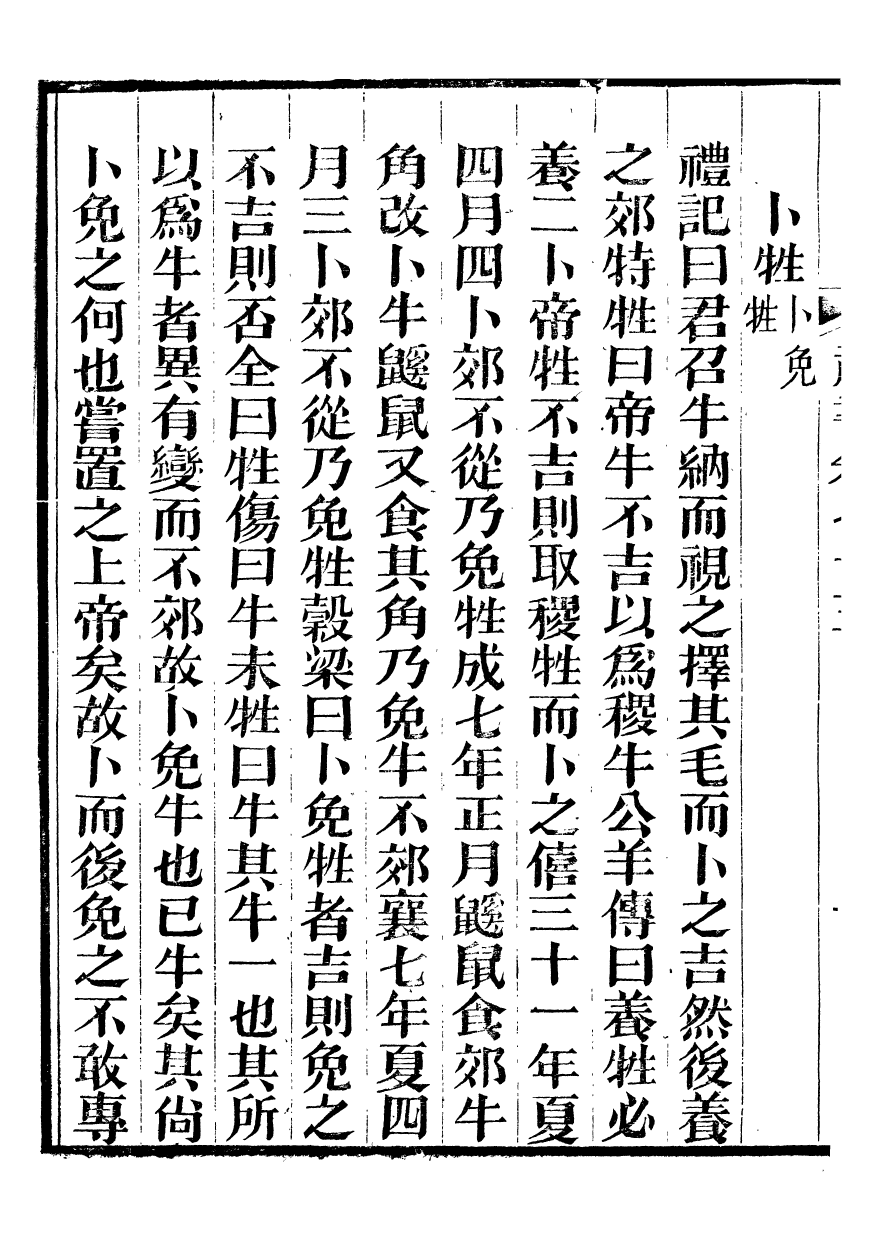 卜牲卜免牲
禮記曰君召牛納而視之擇其毛而卜之吉然後養
之郊特牲曰帝牛不吉以爲稷牛公羊傳曰養牲必
養二卜帝牲不吉則取稷牲而卜之僖三十一年夏
四月四卜郊不從乃免牲成七年正月鼷鼠食郊牛
角改卜牛鼷鼠又食其角乃免牛不郊襄七年夏四
月三卜郊不從乃免牲穀梁曰卜免牲者吉則免之
不吉則否全曰牲傷曰牛未牲曰牛其牛一也其所
以爲牛者異有變而不郊故卜免牛也已牛矣其尙
卜免之何也嘗置之上帝矣故卜而後免之不敢專